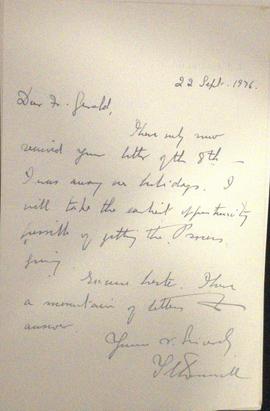 22 Sept. 1976.
Dear Fr. Gerald,
I have only now
received your letter of the 8th –
I was away on holidays. I
will take the earliest opportunity
possible of getting the Process
going.
Excuse haste. I have
a mountain of letters to
answer.
Yours v. sincerely,